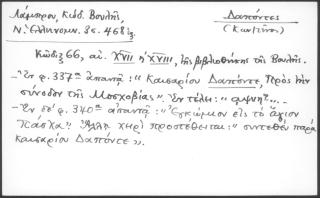 Λάμπρου, Κώδ. Βουλῆς,
Ν. Ἑλληνομν. 3ος. 468 ἑξ.
Δαπόντες
(Κων/τῖνος)
Κώδιξ 66, αἰ. XVII ἢ XVIII, τῆς βιβλιοθήκης τῆς Βουλῆς.
— Ἐν φ. 337α ἀπαντᾷ: "Καισαρίου Δαπόντε, Πρὸς τὴν
σύνοδον τῆς Μοσχοβίας". Ἐν τέλει: "
— Ἐν δὲ φ. 340α ἀπαντᾷ: "Ἐγκώμιον εἰς τὸ ἅγιον
Πάσχα". Ἄλλῃ χειρὶ προστέθειται: "συντεθὲν παρὰ
καισαρίου Δαπόντε".